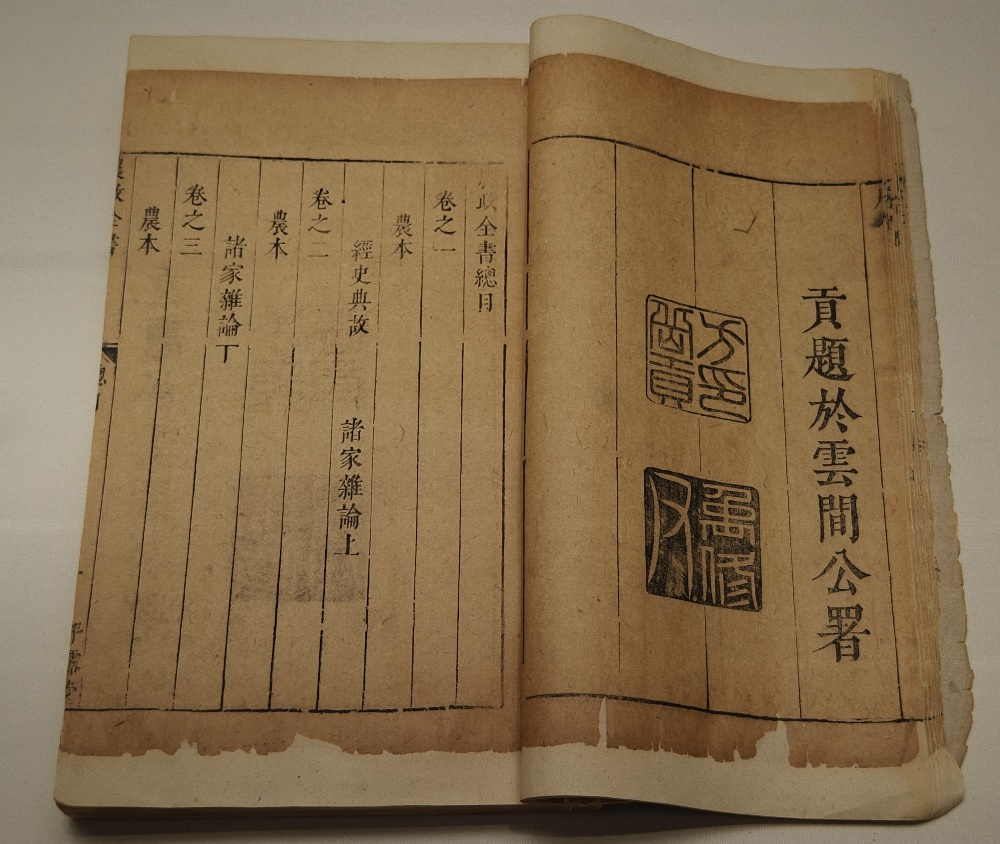 貢題於雲間公署
政全書總目
卷之一
農本
經史典故 諸家雜論上
卷之二
農本
諸家雜論下
卷之三
農本
農政全書
平露堂